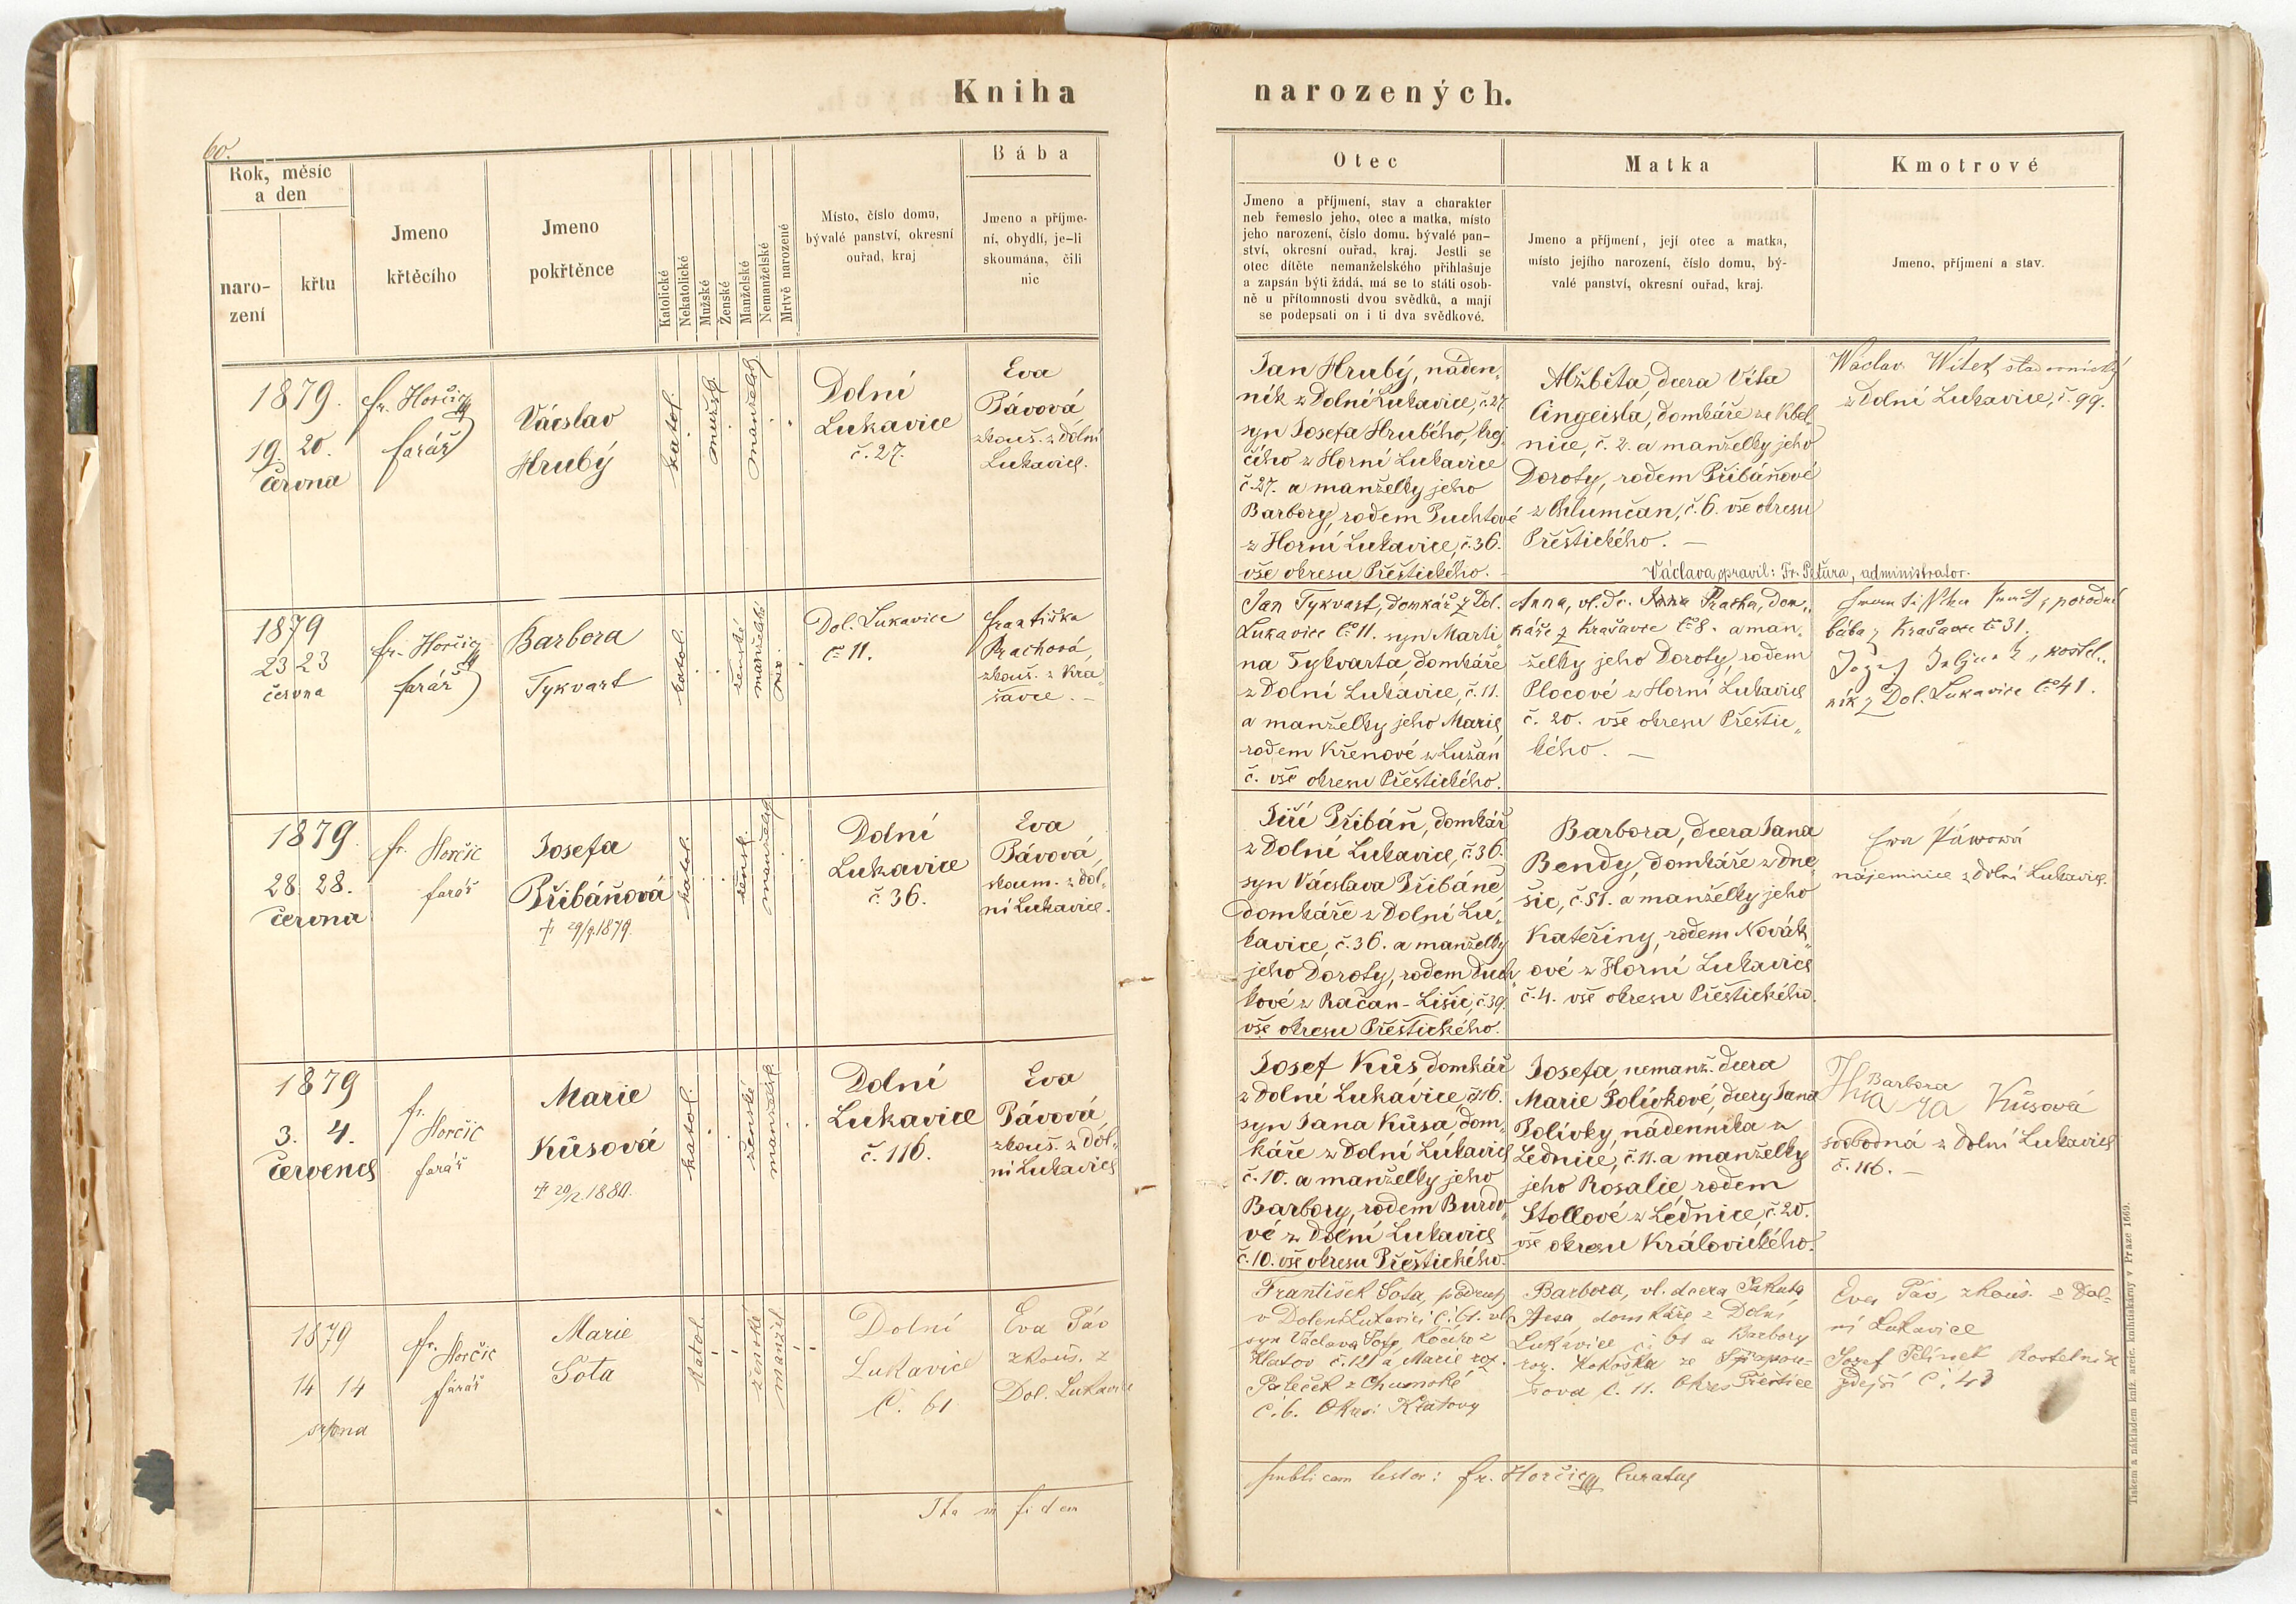 Kniha
narozených.
60.
Rok, měsíc
a den
naro-
zení
křtu
Jmeno
křtěcího
Jmeno
pokřtěnce
Katolické
Nekatolické
Mužské
Ženské
Manželské
Nemanželské
Mrtvě narozené
Místo, číslo domu,
bývalé panství, okresní
ouřad, kraj
Bába
Jmeno a příjme-
ní, obydlí, je-li
skoumána, čili
nic
Otec
Jmeno a příjmení, stav a charakter
neb řemeslo jeho, otec a matka, místo
jeho narození, číslo domu, bývalé pan-
ství, okresní ouřad, kraj. Jestli se
otec dítěte nemanželského přihlašuje
a zapsán býti žádá, má se to státi osob-
ně u přítomnosti dvou svědků, a mají
se podepsati on i ti dva svědkové.
Matka
Jmeno a příjmení, její otec a matka,
místo jejího narození, číslo domu, bý-
valé panství, okresní ouřad, kraj.
Kmotrové
Jmeno, příjmení a stav.
1879.
19. 20.
června
fr. Horčic
farář
Vácslav
Hrubý
katol.
mužsk.
manželsk.
Dolní
Lukavice
č. 27.
Eva
Pávová
zkouš. z Dolní
Lukavice.
Jan Hrubý, náden„
ník z Dolní Lukavice, č. 27.
syn Josefa Hrubého, krej„
čího z Horní Lukavice
č. 27. a manželky jeho
Barbory, rodem Puchtové
z Horní Lukavice, č. 36.
vše okresu Přeštického.
Alžběta, dcera Víta
Cingeisla, domkáře ze Kbel„
nice, č. 2. a manželky jeho
Doroty, rodem Přibáňové
z Chlumčan, č. 6. vše okresu
Přeštického. —
Václava opravil: Fr. Patura, administrator.
Wáclav Witek
z Dolní Lukavice, č. 99.
1879
23 23
června
fr. Horčic
farář
Barbora
Tykvart
katol.
ženské
manželské
Dol. Lukavice
č. 11.
františka
Prachová,
zkouš. z Kra„
šavce. —
Jan Tykvart, domkář z Dol.
Lukavice č. 11. syn Marti„
na Tykvarta, domkáře
z Dolní Lukavice, č. 11.
a manželky jeho Marie,
rodem Křenové z Lužan
č. vše okresu Přeštického.
Anna, vl. dc. Pracha, dom„
káře z Krašavce č. 8. a man„
želky jeho Doroty, rodem
Plocové z Horní Lukavice
č. 20. vše okresu Přeštic„
kého. —
porodní
bába z Krašavce č. 31.
kostel„
ník z Dol. Lukavice č. 41.
1879.
28. 28.
června
fr. Horčic
farář
Josefa
Přibáňová
† 29/9.1879.
katol.
žensk.
manželsk.
Dolní
Lukavice
č. 36.
Eva
Pávová,
skoum. z Dol„
ní Lukavice.
Jiří Přibáň, domkář
z Dolní Lukavice, č. 36.
syn Vácslava Přibáně
domkáře z Dolní Lu„
kavice, č. 36. a manželky
jeho Doroty, rodem Duch„
kové z Račan-Lišic, č. 39.
vše okresu Přeštického.
Barbora, dcera Jana
Bendy, domkáře z Dne„
šic, č. 51. a manželky jeho
Kateřiny, rodem Novák„
ové z Horní Lukavice
č. 4. vše okresu Přeštického.
Ewa Páwowá
nájemnice z Dolní Lukavice.
1879
3. 4.
července
fr.
Horčic
farář
Marie
Kůsová
† 20/2.1880.
katol.
ženské
manželské
Dolní
Lukavice
č. 116.
Eva
Pávová
zkouš. z Dol„
ní Lukavice
Josef Kůs, domkář
z Dolní Lukavice, č. 116.
syn Jana Kůsa, dom„
káře z Dolní Lukavice
č. 10. a manželky jeho
Barbory, rodem Burdo„
vé z Dolní Lukavice
č. 10. vše okresu Přeštického.
Josefa, nemanž. dcera
Marie Polívkové, dcery Jana
Polívky, nádenníka z
Lednice, č. 11. a manželky
jeho Rosalie rodem
Stollové z Lednice, č. 20.
vše okresu Královického.
Barbora
Kůsová
svobodná z Dolní Lukavice
č. 116. —
1879
14 14
srpna
fr. Horčic
farář
Marie
Šota
katol.
ženské
manžel
Dolní
Lukavice
č. 61
Eva Páv
zkouš. z
Dol. Lukavice
František Šota, podruh
v Dolení Lukavici č. 61. vl.
syn Václava Šoty, kočího z
Klatov č. 121 a Marie roz.
Pateček z Chumské
č. 6. Okresi Klatovy
Barbora, vl. dcera Jakuba
domkáře z Dolní
Lukavice č 61 a Barbory
roz. Kokoška ze
č. 11. Okres Přeštice
Eva Páv, zkouš. z Dol-
ní Lukavice
Josef Kostelník
zdejší č. 41
Ita in fidem
publicam testor: fr. Horčic Curatus
Tiskem a nákladem kníž. arcib. knihtiskárny v Praze 1669.